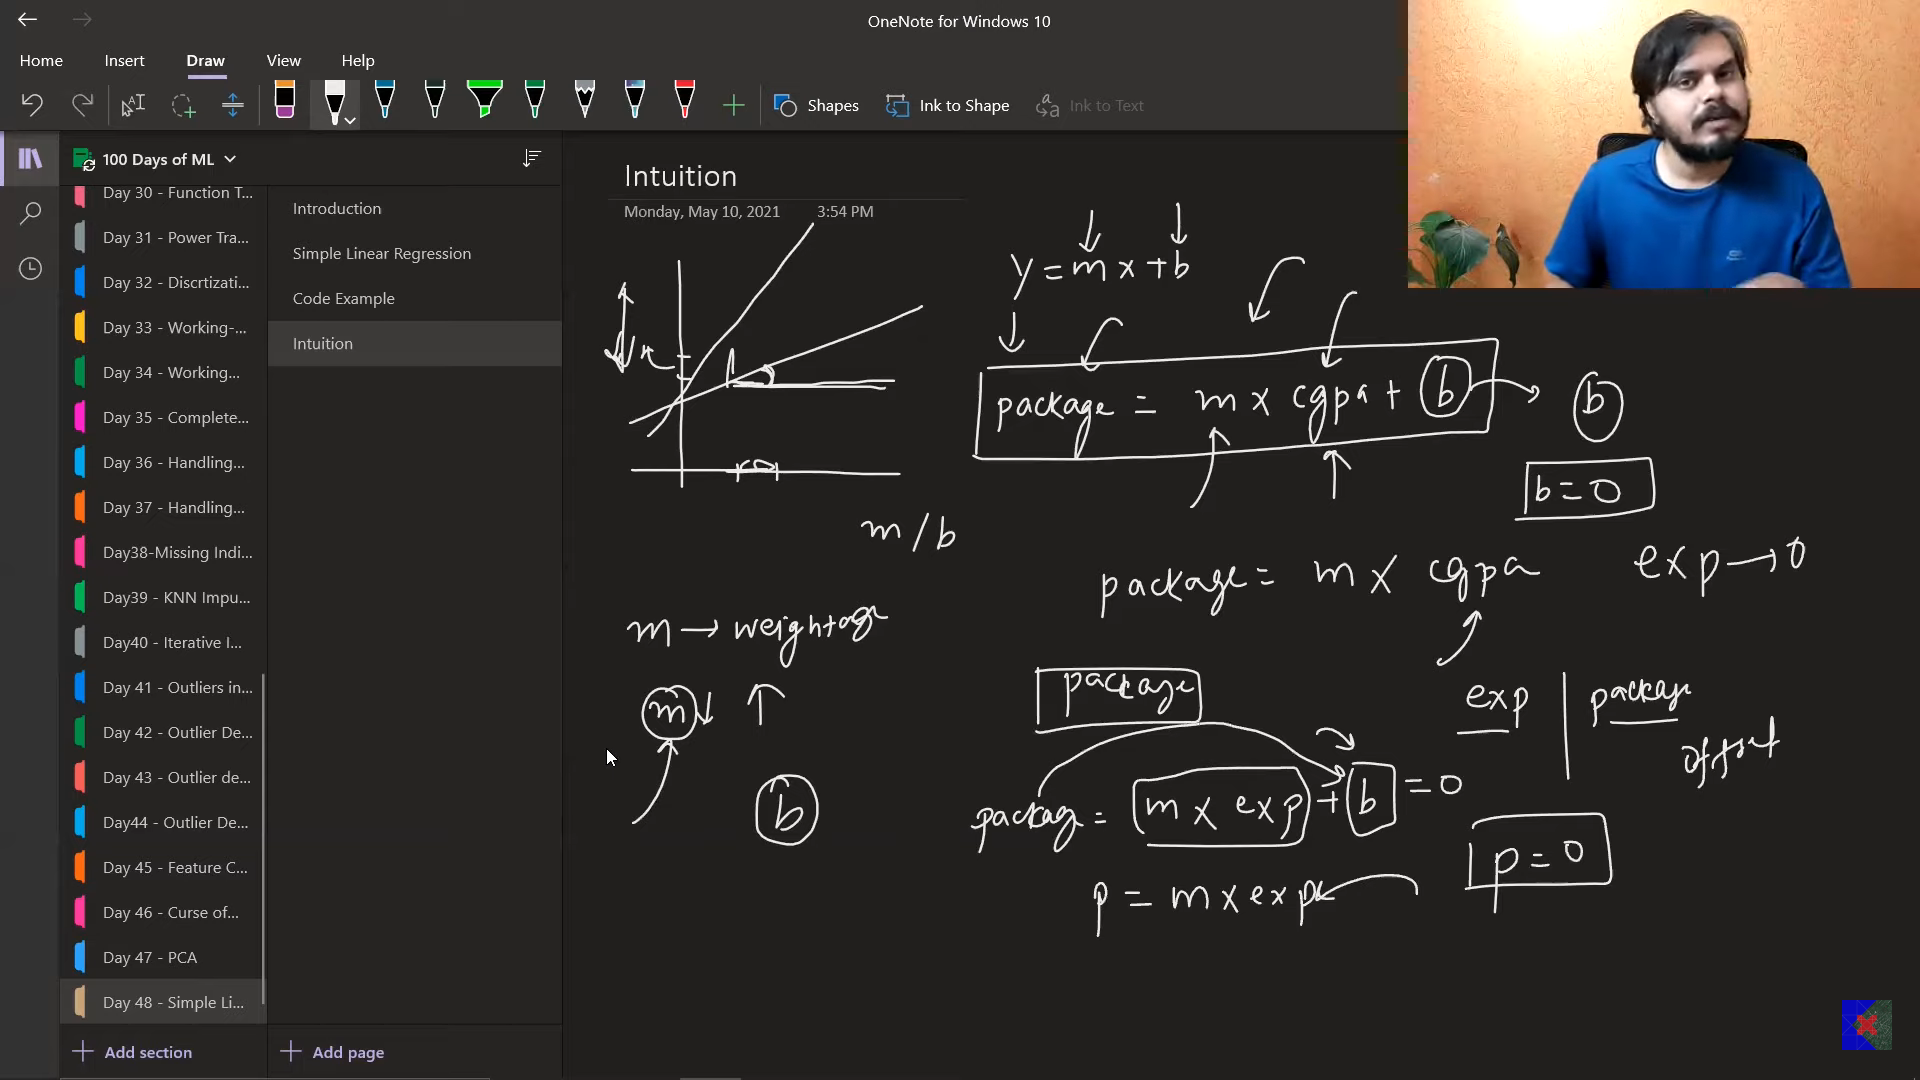 OneNote for Windows 10
Home Insert Draw View Help
Shapes Ink to Shape Ink to Text
100 Days of ML
Day 30 - Function T...
Day 31 - Power Tra...
Day 32 - Discrtizati...
Day 33 - Working-...
Day 34 - Working...
Day 35 - Complete...
Day 36 - Handling...
Day 37 - Handling...
Day38-Missing Indi...
Day39 - KNN Impu...
Day40 - Iterative I...
Day 41 - Outliers in...
Day 42 - Outlier De...
Day 43 - Outlier de...
Day44 - Outlier De...
Day 45 - Feature C...
Day 46 - Curse of...
Day 47 - PCA
Day 48 - Simple Li...
Add section
Introduction
Simple Linear Regression
Code Example
Intuition
Add page
Intuition
Monday, May 10, 2021 3:54 PM
y = mx + b
package = m x cgpa + b → b
b = 0
m / b
package = m x cgpa exp → 0
m → weightage
m ↓ ↑
b
package
exp | package
offset
package = m x exp + b = 0
p = 0
p = m x exp